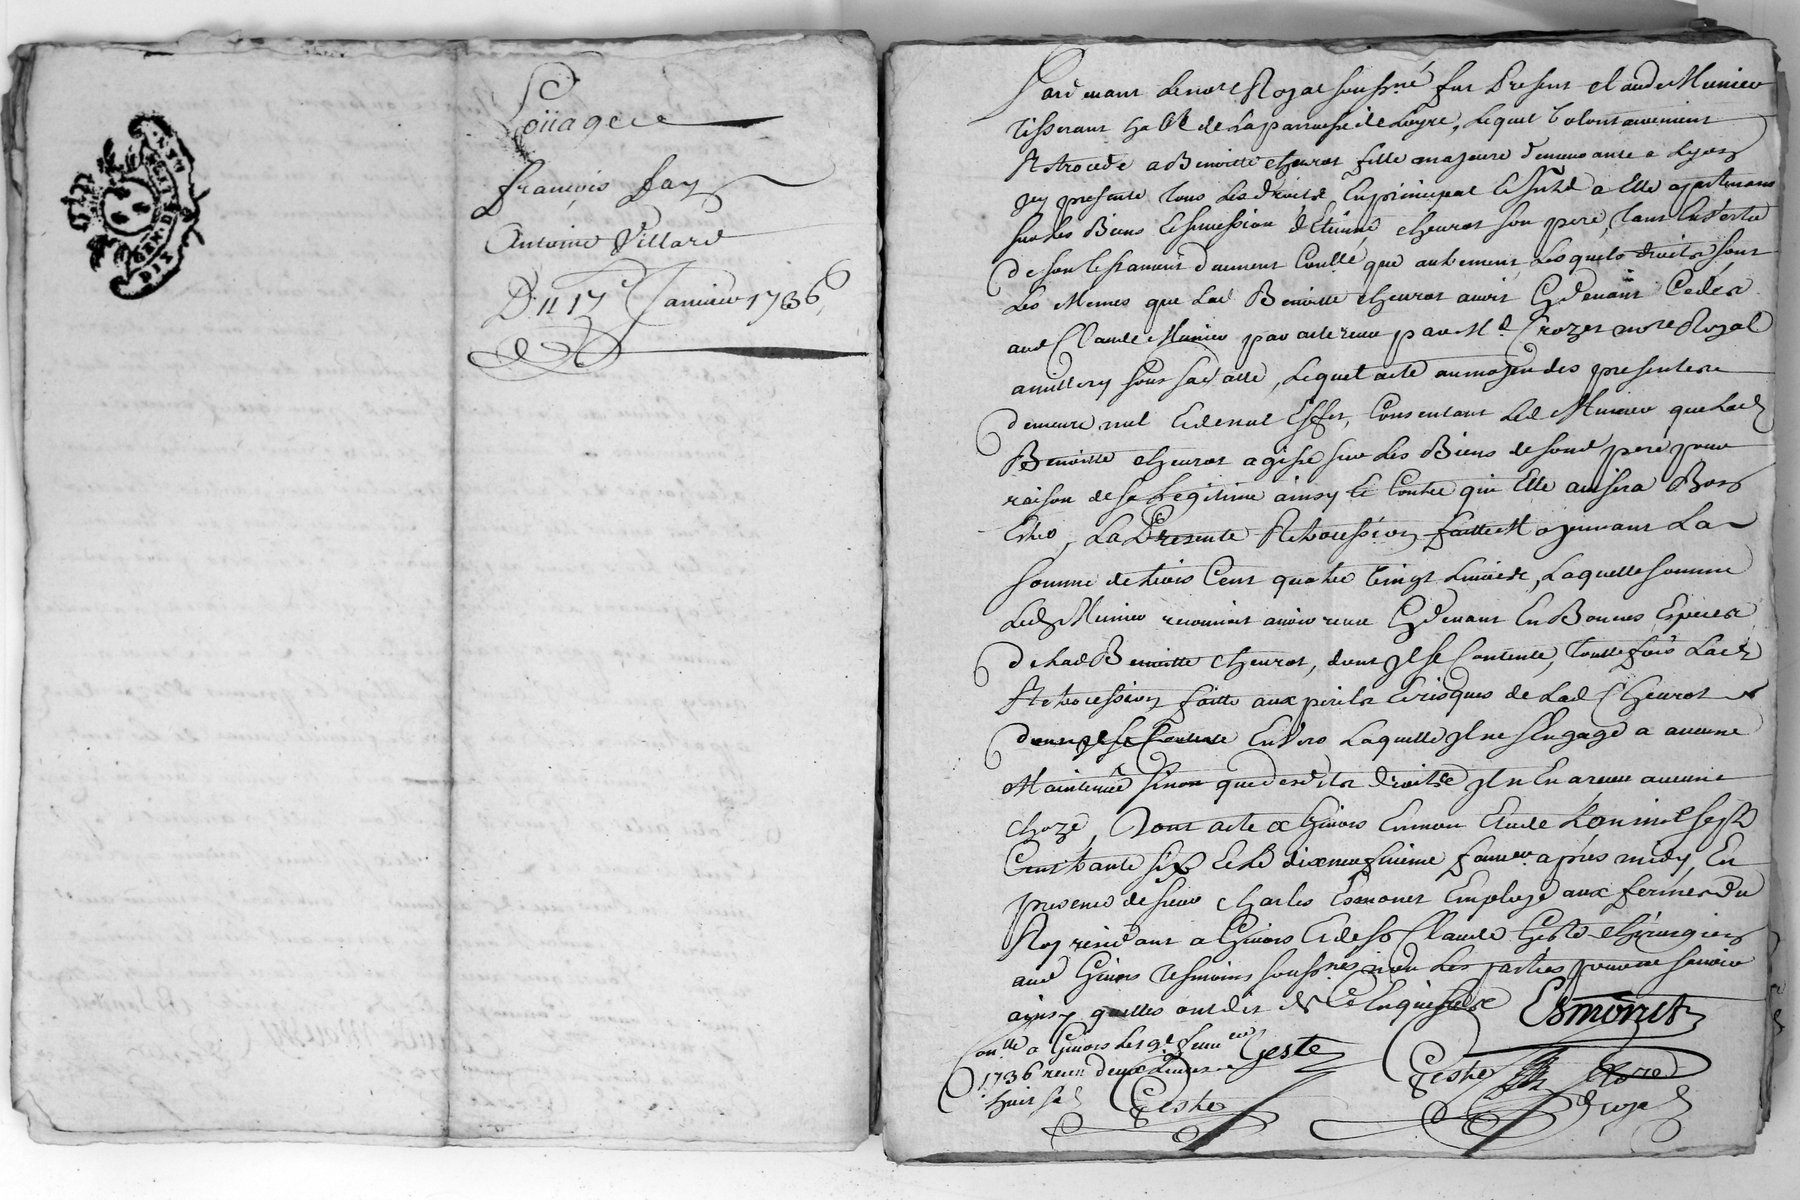 GEN. DE LYON
DIX
Loüage
françois fay
Antoine Villard
Du 17e Janvier 1736
Pardevant le not.re Royal soussigné fut present claude Munier
tisserant hab.t de la parroisse de Loyre, Lequel volontairement
Retrocede a Benoitte cheurat fille majeure demeurante a Lyon
jcy presente tous Les droits En principal Et suitte a Elle apartenans
sur Les Biens Et succession d'Etienne cheurat son pere, tant En vertu
de son testament duement Controllé que autrement, Lesquels droits sont
Les Memes que Lad Benoitte cheurat avoit Cydevant Cedés
aud Claude Munier par acte receu par M.e Crozet no.re Royal
a millery sous sa datte, Lequel acte au moyen des presentes
demeure nul Et de nul Effet, Consentant Led Munier que Lad
Benoitte cheurat agisse sur Les Biens de sond pere pour
raison de sa Legitime ainsy Et Contre qui Elle avisera Bon
Estre, La Presente Retrocession faitte Moyennant La
somme de trois Cent quatre vingt Livres, Laquelle somme
Led Munier reconnoit avoir receu Cydevant En Bonnes Especes
de Lad Benoitte cheurat, dont jl se Contente, touttefois Lad
Retrocession faitte aux perils Et risques de Lad Cheurat
dont jl se Contente Envers Laquelle jl ne s'Engage a aucune
Maintenue sinon que desdits droits jl n'En a receu aucune
choze, Dont acte a Givors En mon Etude L'an mil sept
Cent trante six Et Le dixneufvieme janvier apres midy, En
presence de sieur charles Esmonet Employé aux fermes du
Roy residant a Givors Et de sr Claude Geste chirurgien
aud Givors tesmoins soussignés non Les parties pour ne sçavoir
ainsy quelles ont dit de Ce Enquises
Esmonet
con.llé a Givors Le 19e janvier
1736 receu deux Livres
huit s.
Geste
Geste
Geste
No.re
Royal